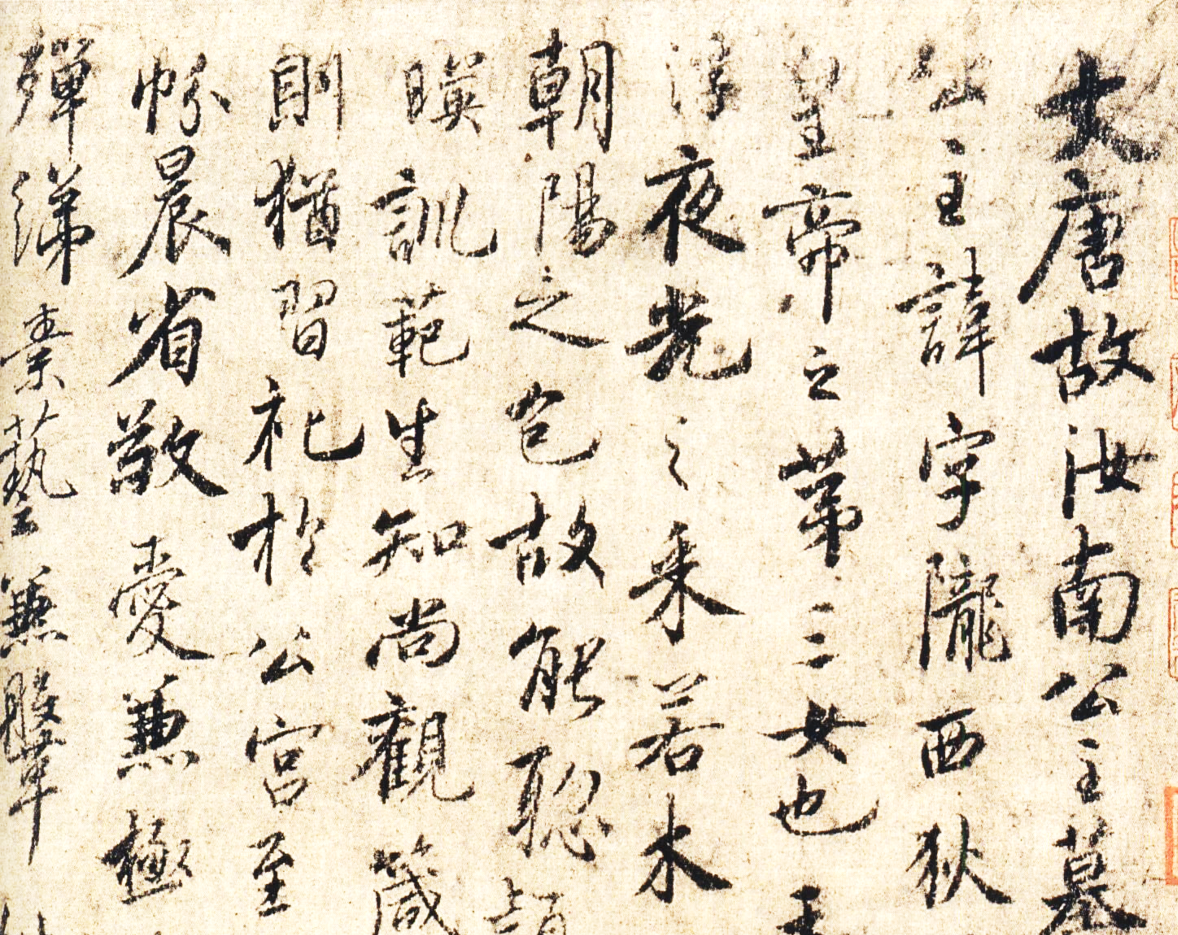 大唐故汝南公主墓
公主諱字隴西狄
皇帝之苐三女也
浮夜光之采若木
朝陽之色故能聡
暎訓範生知尚觀箴
則猶習礼於公宫至
帉晨省敬愛兼極
殫涕